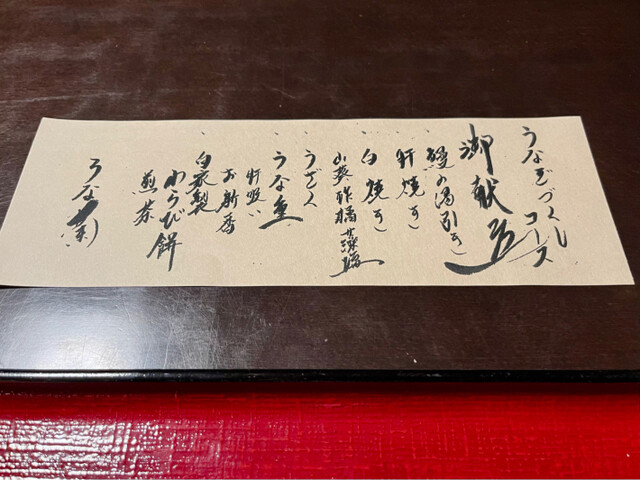 うなぎづくし
コース
御献立
鰻の湯引き
肝焼き
白焼き
山葵 酢橘 藻塩
うざく
うな重
肝吸い
お新香
自家製
わらび餅
煎茶
うな菊